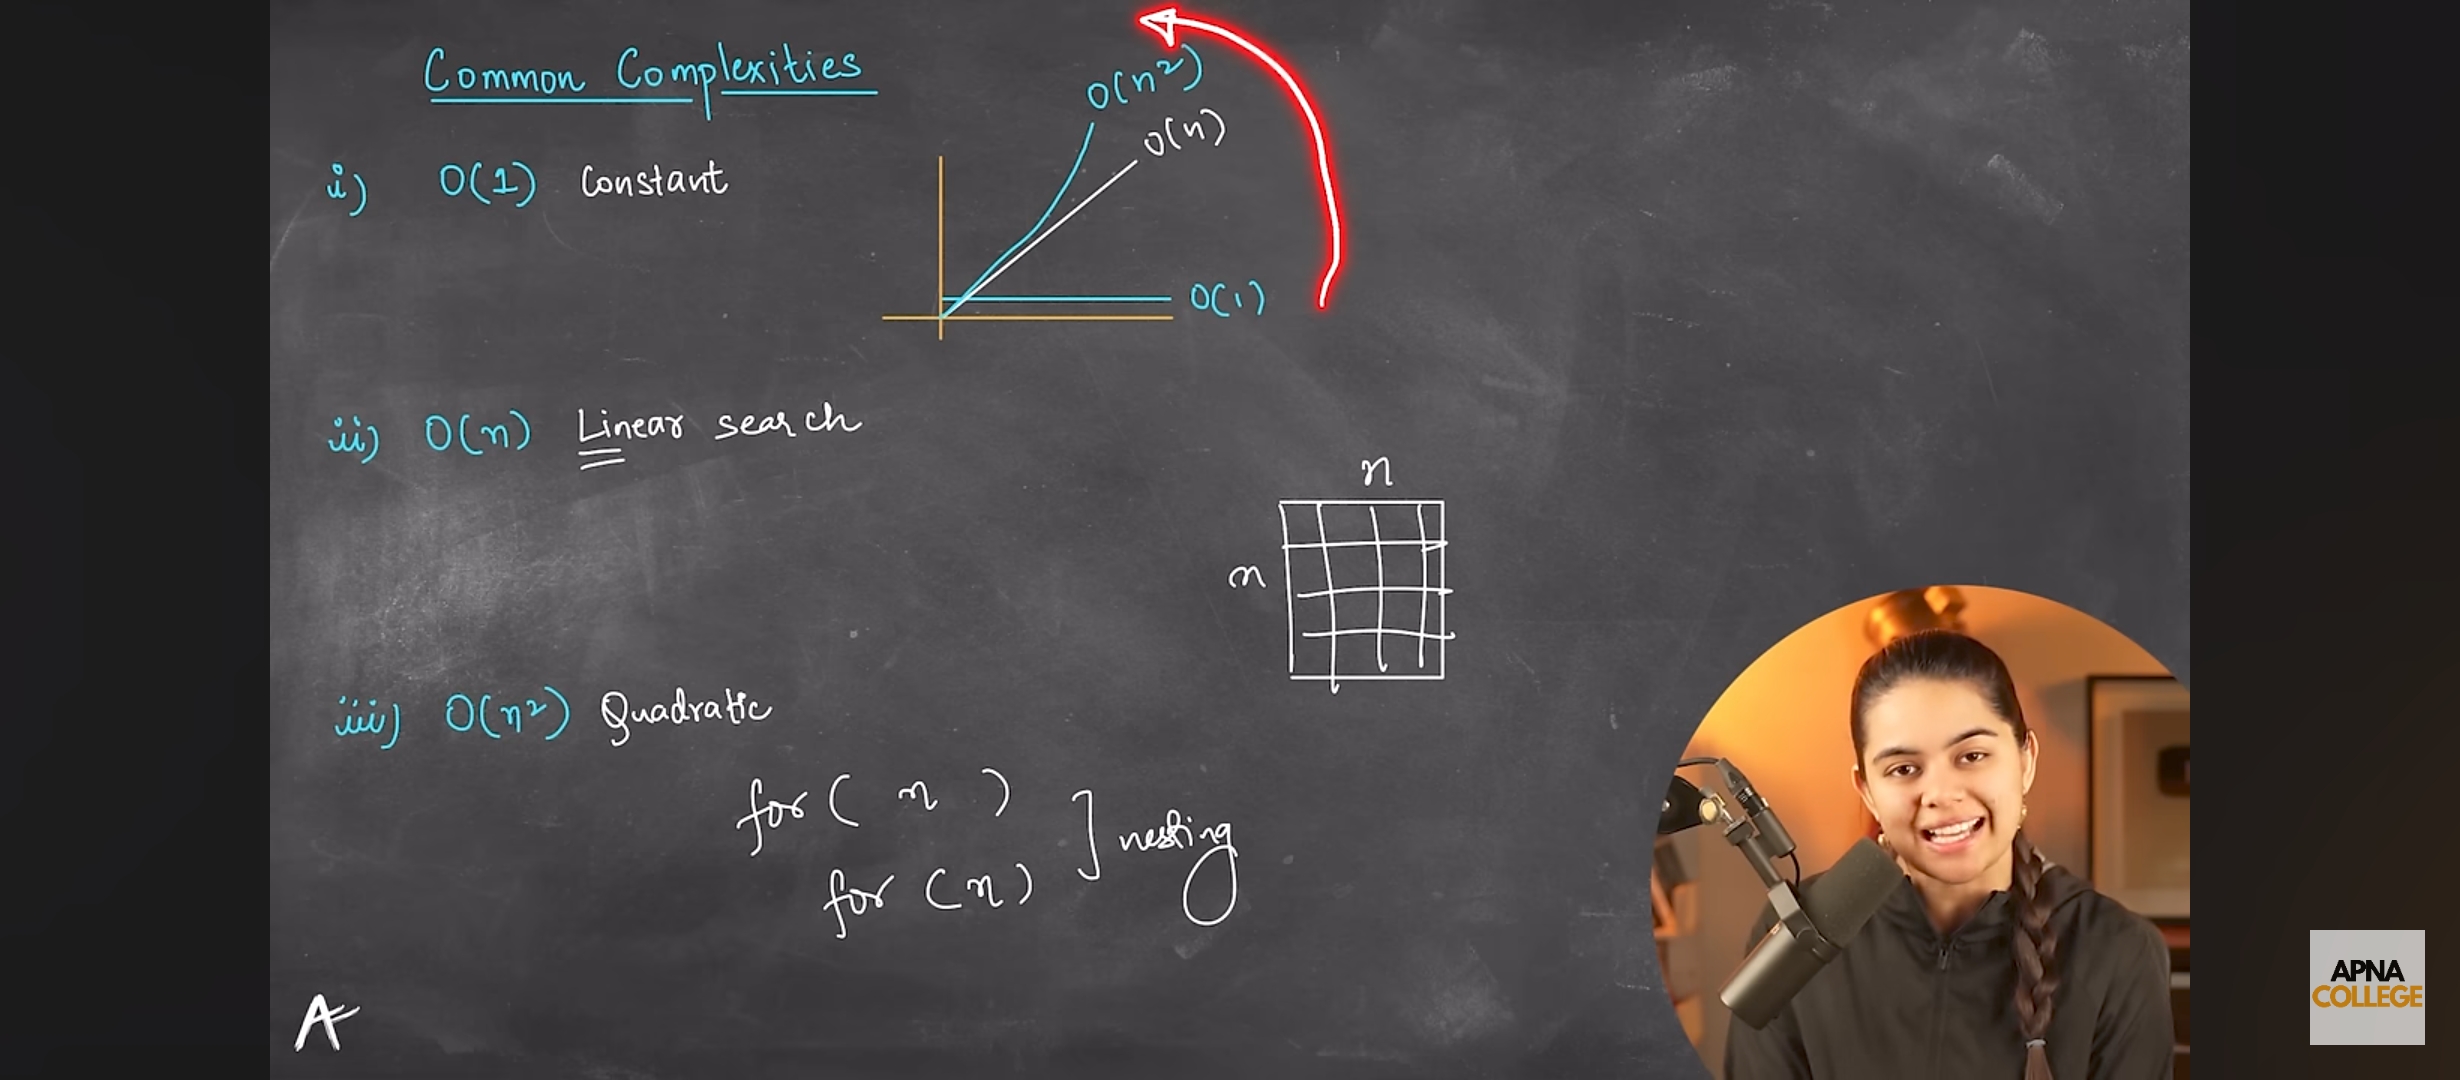 Common Complexities
i) O(1) Constant
O(n²)
O(n)
O(1)
ii) O(n) Linear search
n
n
iii) O(n²) Quadratic
for ( n )
for (n)
nesting
A
APNA
COLLEGE